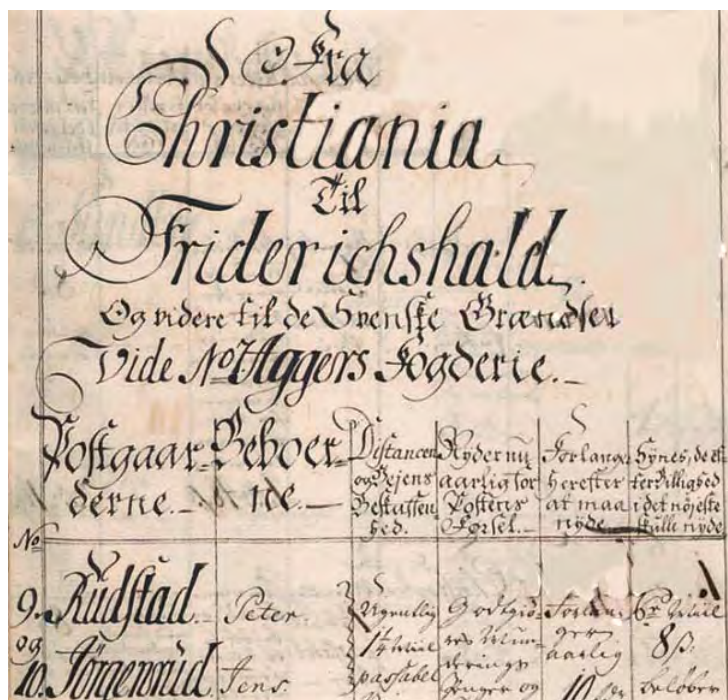 Fra
Christiania
Til
Friderichshald
Og videre til de Svenske Grændser
Vide No 7 Aggers Fogderie.
Postgaar-
derne.
Beboer-
ne.
Distancen
og Vejens
Beskaffen
hed.
Nyder nu
aarlig for
Postens
Førsel.
Forlanger
herefter
at maa
nyde
Synes, de ef-
ter Billighed
i det nøjeste
skulle nyde
No
9. Rudstad. Peter.
og
10. Jørgensrud. Jens.
1/4 Miil
passabel
Godtgiø-
aarlig
10
8 ß.